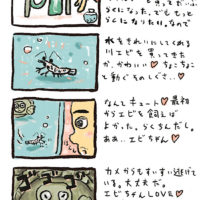 らくになった。でももっと
らくになりたい。なので
水をきれいにしてくれる
川エビを買ってきた
か、かわいい♡ちょこちょこ
と動くそのしぐさ‥♡
なんてキュート♡最初
からエビを飼えば
よかった。らくちんだし。
ああ‥エビちゃん♡
カメからもすいすい逃げて
いる。大丈夫だ。
エビちゃんLOVE♡
ゴゴゴ